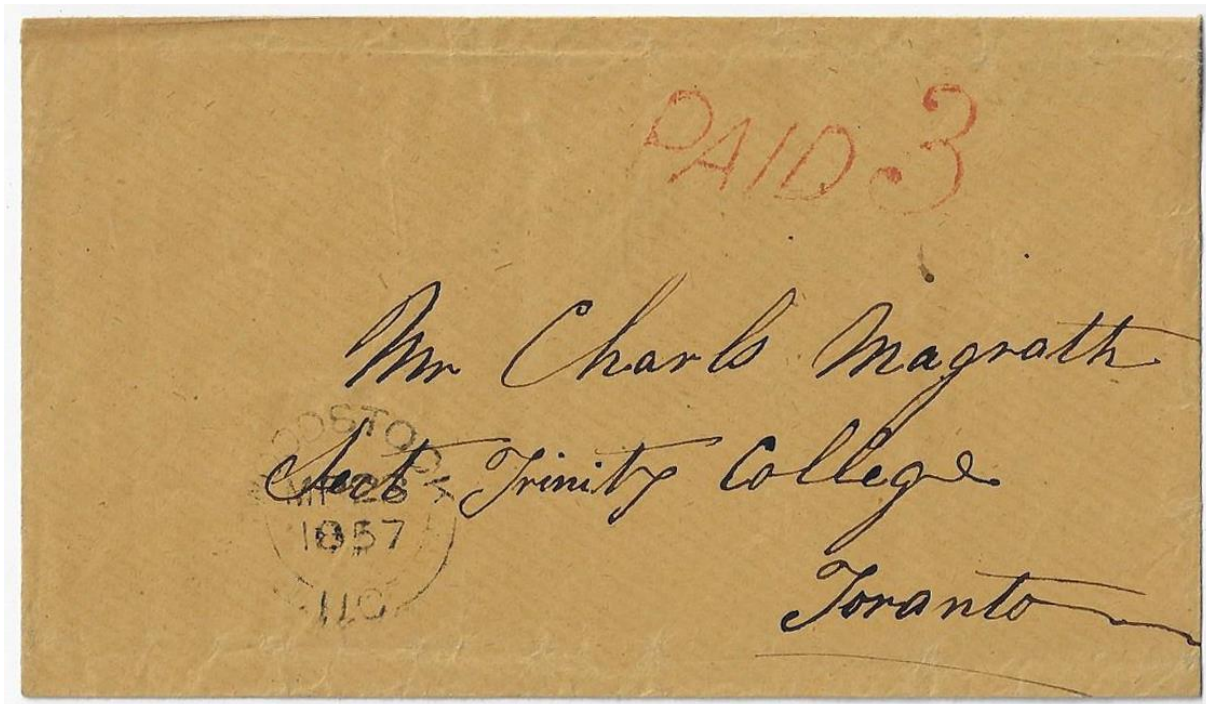 PAID 3
Mr Charls Magrath
Sect Trinity College
Toranto
1857